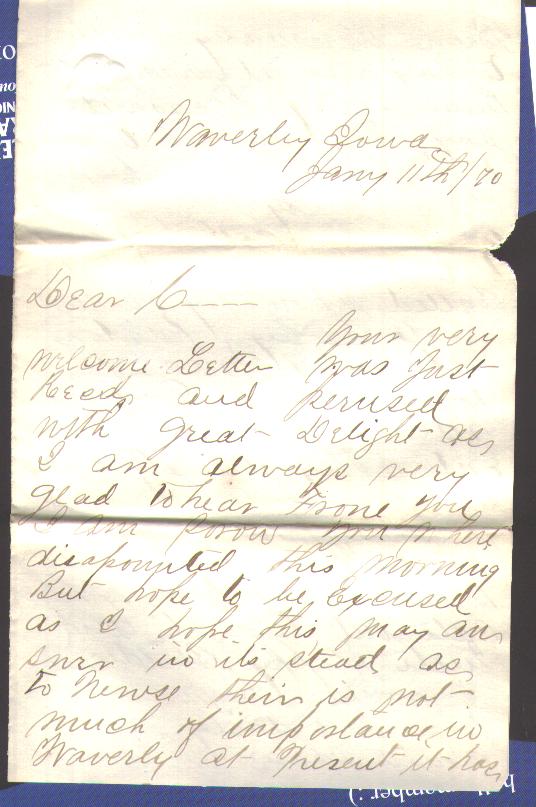 Waverly Iowa
Jany 11th/70
Dear C——
Your very
welcome Letter was Just
Recd, and perused
with great Delight as,
I am always very
glad to hear Frome you
I am sorow you where
disaponted this morning
But hope to be Excused
as I hope this may an
swer in its stead, as
to Newse their is not
much of importance in
Waverly at Present it has,